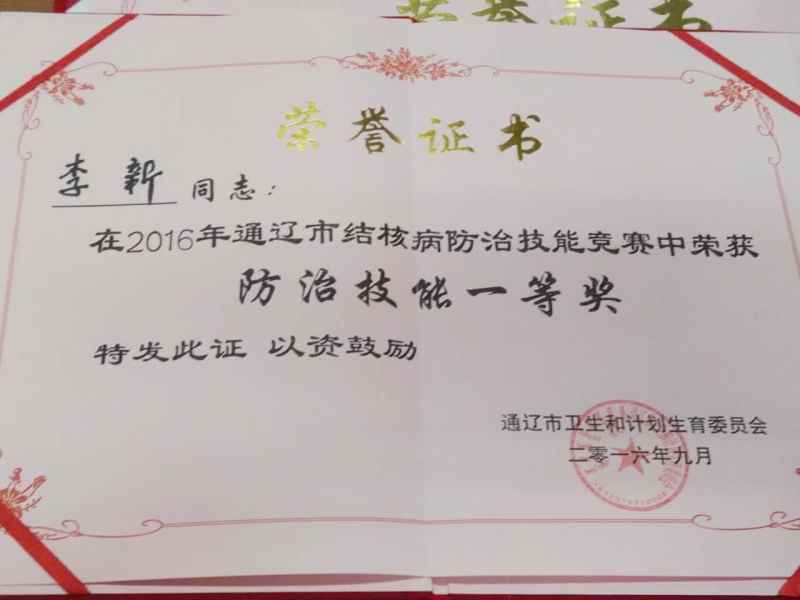 荣誉证书
荣誉证书
李新 同志：
在2016年通辽市结核病防治技能竞赛中荣获
防治技能一等奖
特发此证 以资鼓励
通辽市卫生和计划生育委员会
二零一六年九月